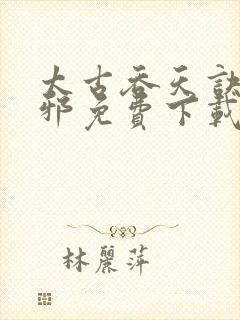 太古吞天訣
邪免費下載
林麗萍